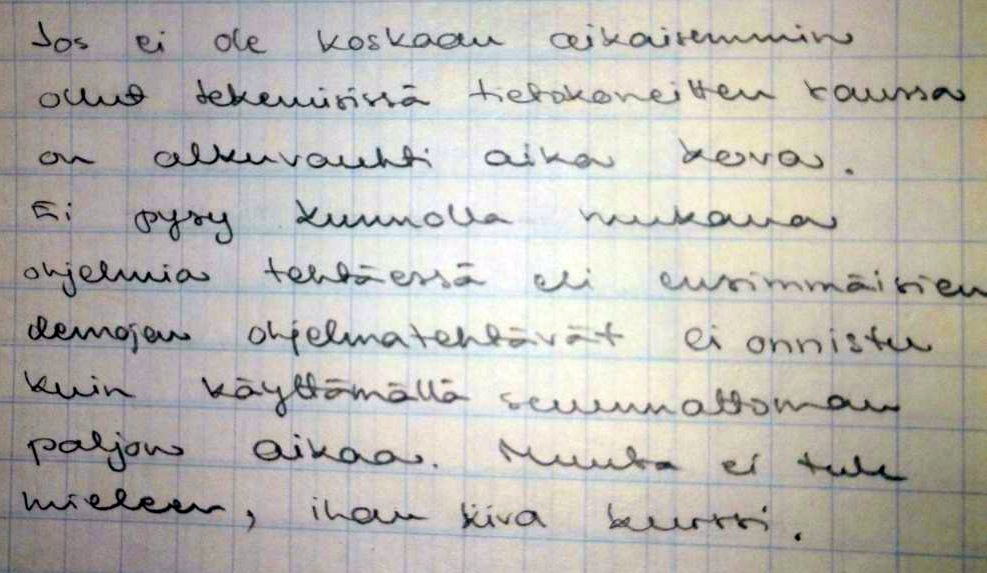 Jos ei ole koskaan aikaisemmin
ollut tekemisissä tietokoneitten kanssa
on alkuvauhti aika kova.
Ei pysy kunnolla mukana
ohjelmia tehtäessä eli ensimmäisien
demojen ohjelmatehtävät ei onnistu
kuin käyttämällä suunnattoman
paljon aikaa. Muuta ei tule
mieleen, ihan kiva kurssi.